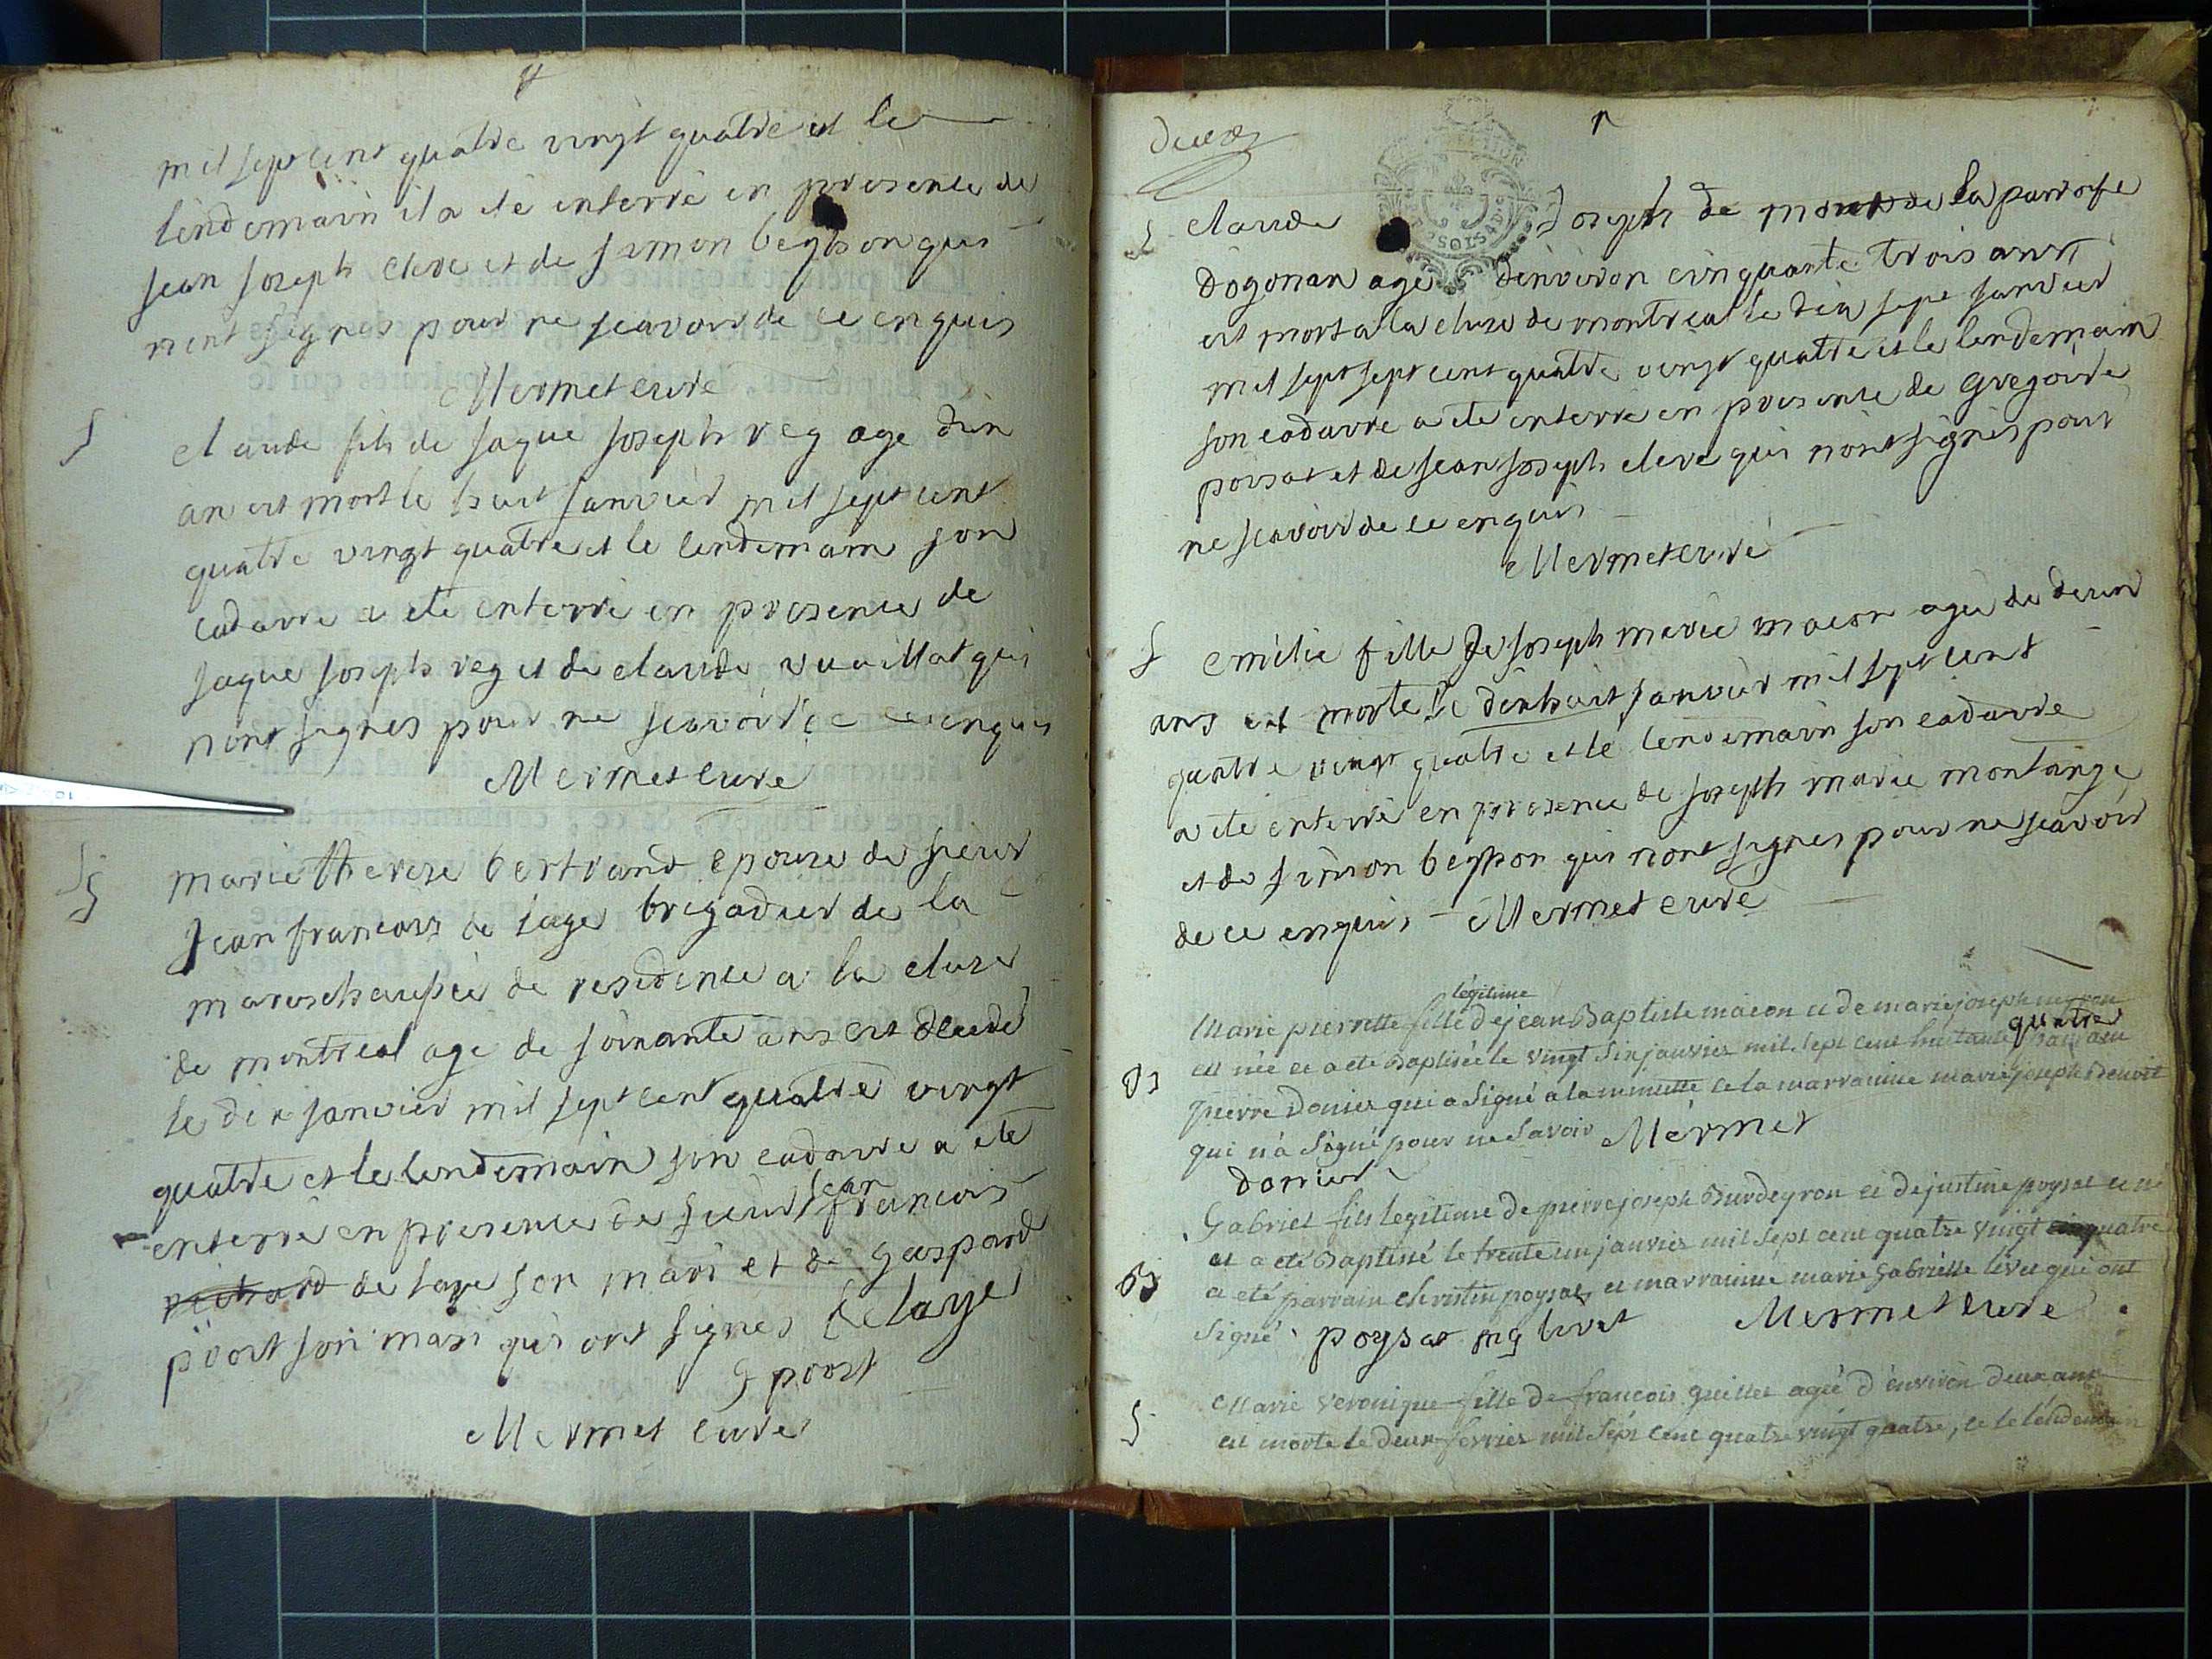 mil sept cent quatre vingt quatre et le
lendemain il a ete enterré en presence de
jean joseph eleve et de simon begbon qui
nont signes pour ne scavoir de ce enquis
Mermet curé
S claude fils de jaque joseph rey age dun
an est mort le huit janvier mil sept cent
quatre vingt quatre et le lendemain son
cadavre a ete enterré en presence de
jaque joseph rey et de claude vuaillat qui
nont signes pour ne scavoir de ce enquis
Mermet curé
S marie therese bertrand epouse de sieur
jean francois de laye brigadier de la
mareschaussée de residence a la cluse
de montreal age de soixante ans est decedé
le dix janvier mil sept cent quatre vingt
quatre et le lendemain son cadavre a ete
enterré en presence de sieur jean francois
de laye son mari et de gaspard
poort son mari qui ont signes Delaye
G poort
Mermet curé
deux
S claude joseph de la parroise
dogonan age denviron cinquante trois ans
est mort a la cluse de montreal le dix sept janvier
mil sept sept cent quatre vingt quatre et le lendemain
son cadavre a ete enterré en presence de gregoire
poisat et de jean joseph eleve qui nont signés pour
ne scavoir de ce enquis
Mermet curé
S emilie fille de joseph marie macon agée de deux
ans est morte le dixhuit janvier mil sept cent
quatre vingt quatre et le lendemain son cadavre
a ete enterré en presence de joseph marie montange
et de simon begbon qui nont signes pour ne scavoir
de ce enquis Mermet curé
Marie pierrette fille légitime de jean Baptiste macon et de marie joseph
est née et a eté Baptisée le vingt six janvier mil sept cent huitante quatre parrain
pierre Donier qui a signé a la minutte et la marrainne marie joseph Benoit
qui n'a signé pour ne savoir Mermet
donier
Gabriel fils legitime de pierre joseph Burdeyron et de justine poysat est né
et a eté Baptisé le trente un janvier mil sept cent quatre vingt quatre
a eté parrain christin poysat, et marrainne marie Gabrielle livet qui ont
signé poysat mg livet Mermet curé
S Marie veronique fille de francois quillet agée d'environ deux ans
est morte le deux fevrier mil sept cent quatre vingt quatre, et le lendemain